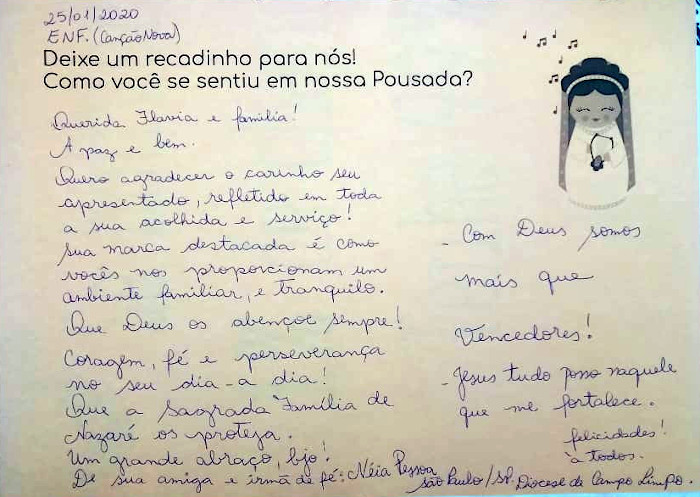 25/01/2020
ENF. (Canção Nova)
Deixe um recadinho para nós!
Como você se sentiu em nossa Pousada?
Querida Flavia e família!
A paz e bem.
Quero agradecer o carinho seu
apresentado, refletido em toda
a sua acolhida e serviço!
Sua marca destacada é como
vocês nos proporcionam um
ambiente familiar, e tranquilo.
Que Deus os abençoe sempre!
Coragem, fé e perseverança
no seu dia-a dia!
Que a Sagrada Família de
Nazaré os proteja.
Um grande abraço, bjo!
De sua amiga e irmã de fé: Néia Pessoa
São Paulo/SP. Diocese de Campo Limpo.
- Com Deus somos
mais que
Vencedores!
- Jesus tudo posso naquele
que me fortalece.
felicidades!
à todos.